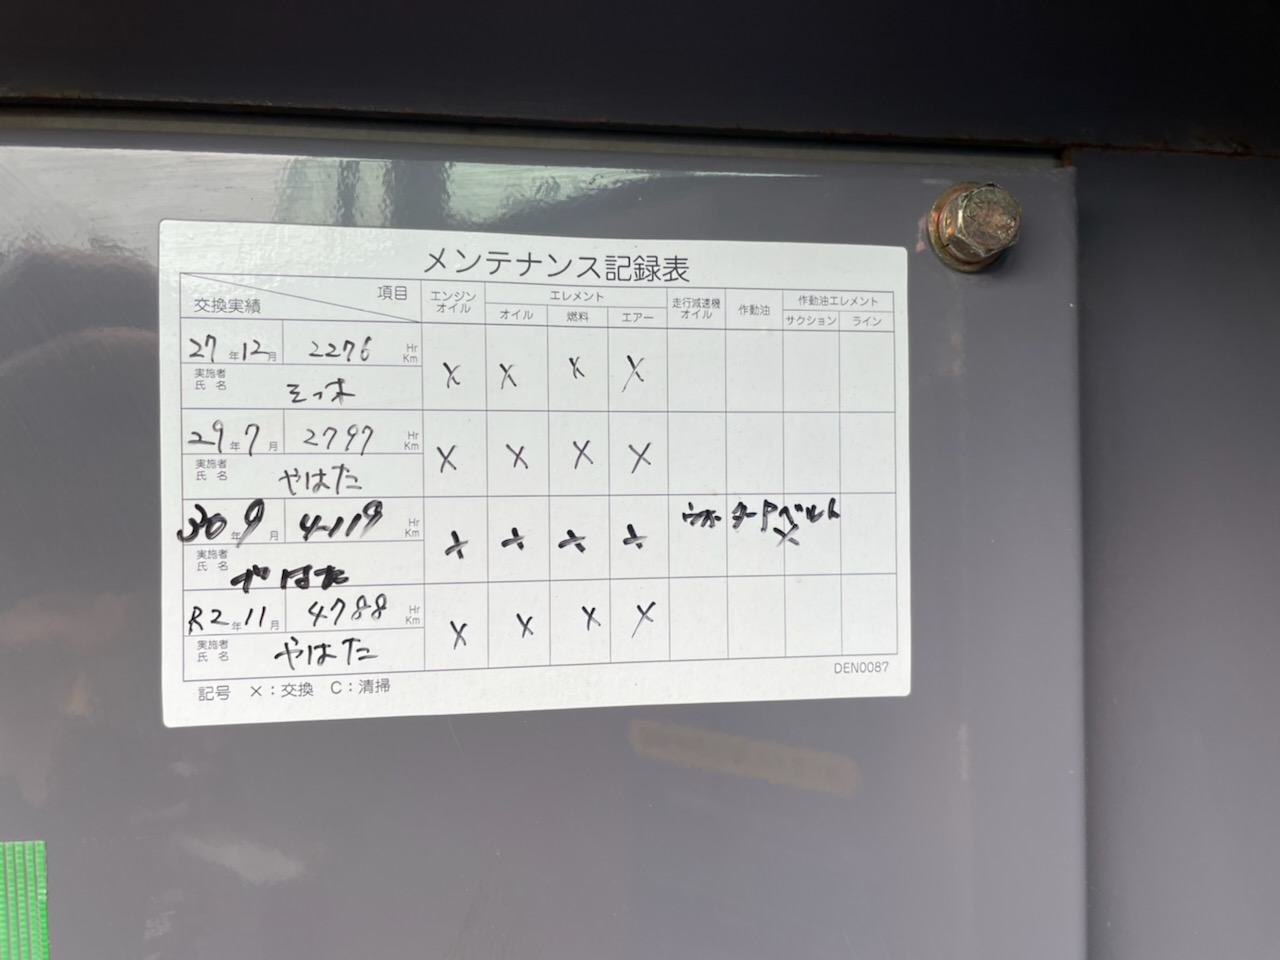 メンテナンス記録表
項目
交換実績
エンジンオイル
エレメント
オイル
燃料
エアー
走行減速機オイル
作動油
作動油エレメント
サクション
ライン
27年12月 2276 Hr Km
実施者氏名
X X X X
29年7月 2797 Hr Km
実施者氏名 やはた
X X X X
30年9月 4119 Hr Km
実施者氏名 やはた
X X X X ベルト X
R2年11月 4788 Hr Km
実施者氏名 やはた
X X X X
DEN0087
記号 X:交換 C:清掃